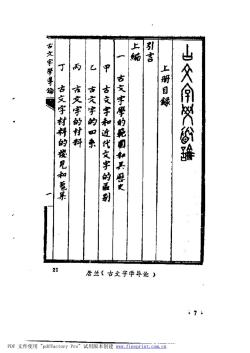 古文字學導論
上冊目錄
引言
上編
一 古文字學的範圍和其歷史
甲 古文字和近代文字的區別
乙 古文字的四系
丙 古文字的材料
丁 古文字材料的發見和蒐集
古文字學導論
一
21
唐兰《古文字学导论》
· 7 ·
PDF 文件使用 "pdfFactory Pro" 试用版本创建 www.fineprint.com.cn